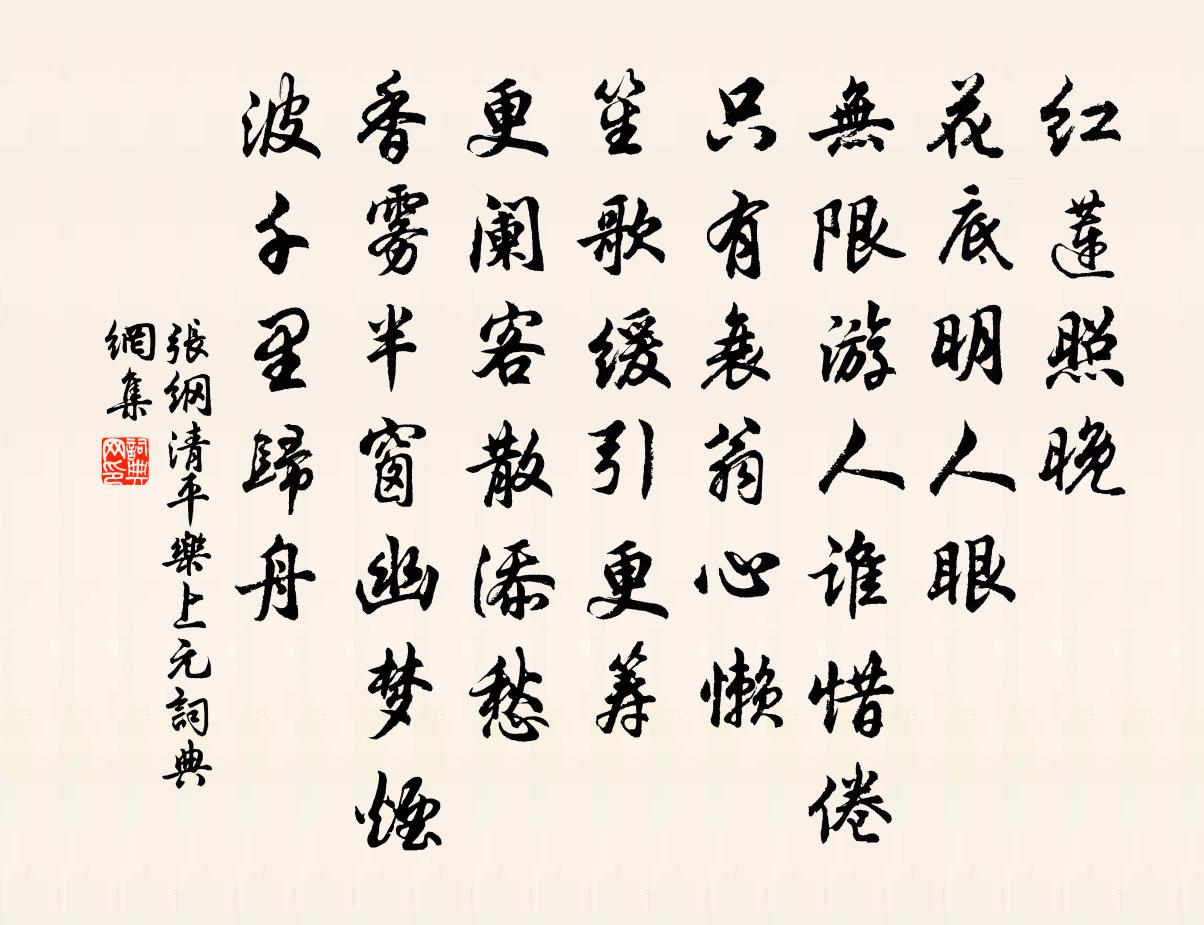 红蓮照晚
花底明人眼
無限游人谁惜倦
只有衰翁心懒
笙歌缓引更筹
更阑客散添愁
香雾半窗幽梦煙
波千里歸舟
張纲清平樂上元詞典
網集
詞典網